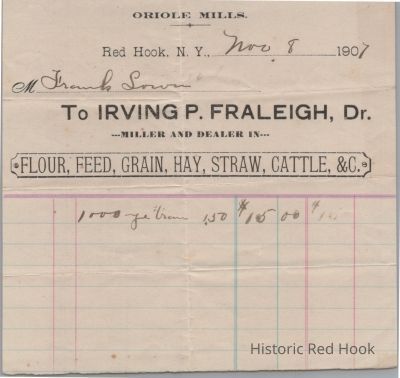 ORIOLE MILLS.
Red Hook, N. Y., Nov 8 1907
M Frank
To IRVING P. FRALEIGH, Dr.
---MILLER AND DEALER IN---
FLOUR, FEED, GRAIN, HAY, STRAW, CATTLE, &C.
1000 1.50 $15 00
Historic Red Hook